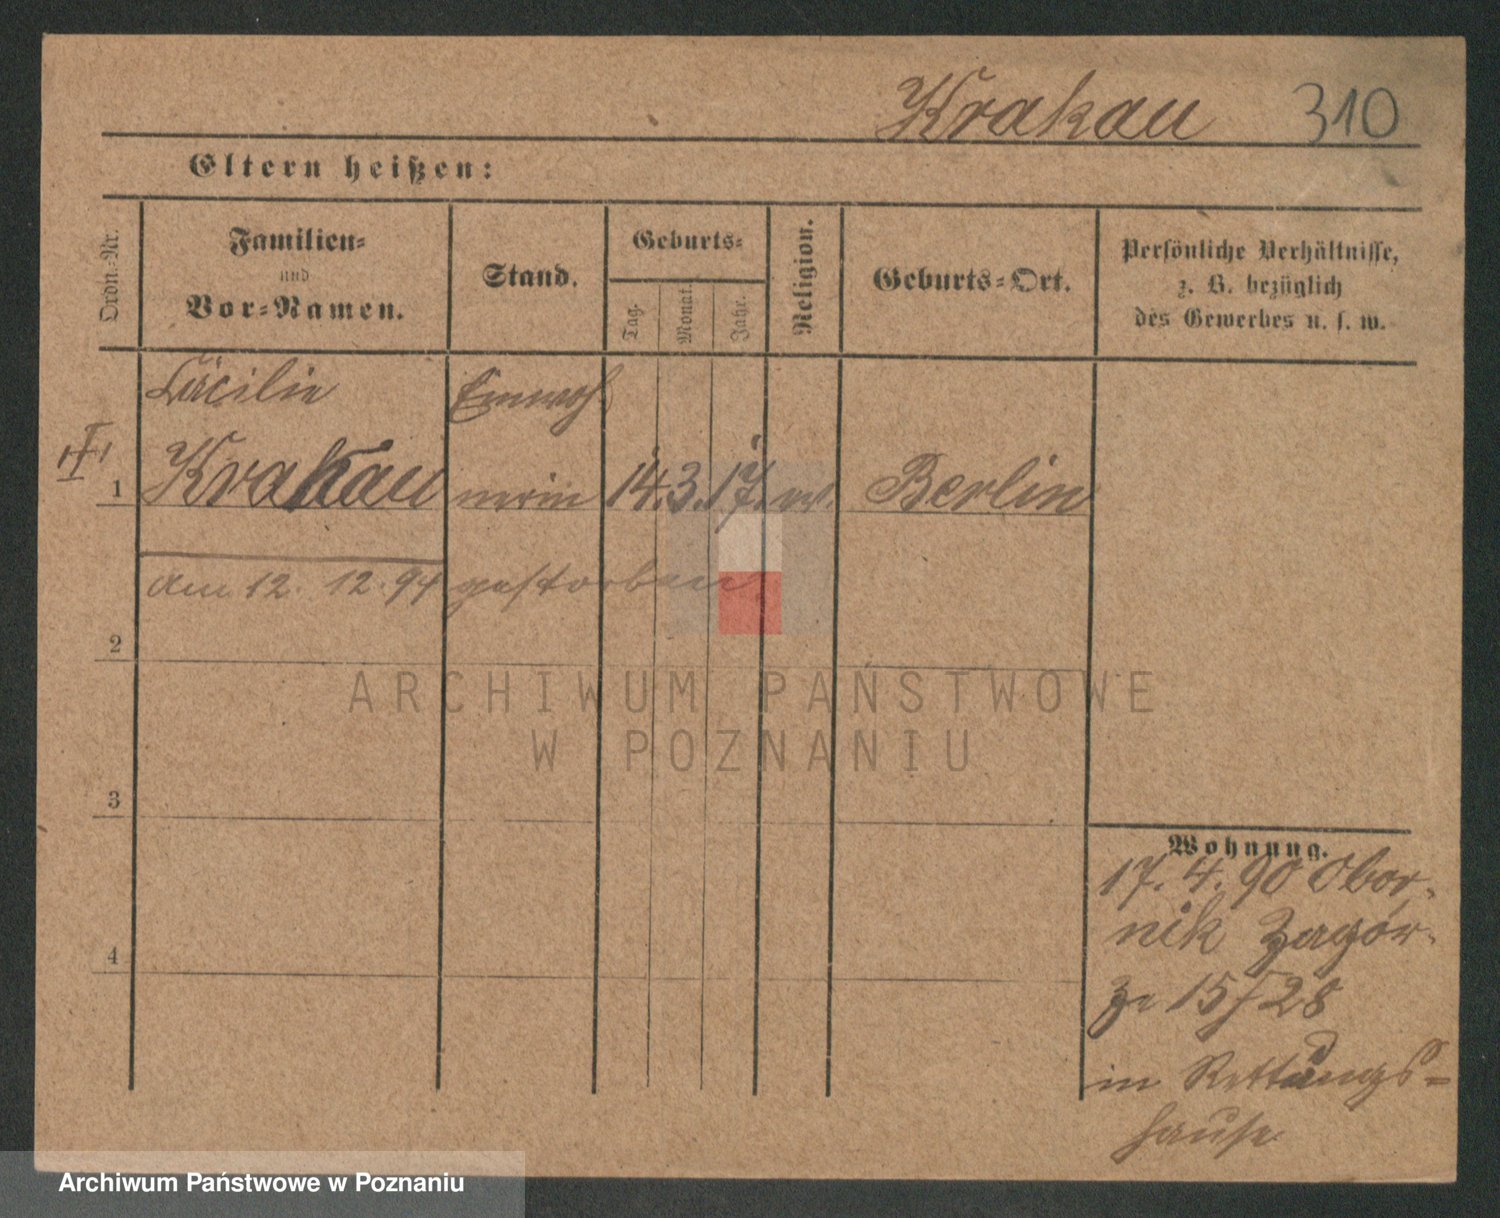 Krakau 310
Eltern heißen:
Ordn.-Nr.
Familien-
und
Vor-Namen.
Stand.
Geburts-
Tag.
Monat.
Jahr.
Religion.
Geburts-Ort.
Persönliche Verhältnisse,
z. B. bezüglich
des Gewerbes u. s. w.
Cäcilie
Krakau
Einwoh
nerin
1
14. 3. 17.
Berlin
Am 12. 12. 94 gestorben
2
3
4
Wohnung.
17. 4. 90 Obor-
nik Zagór-
ze 15/28
in Rettungs-
hause
ARCHIWUM PAŃSTWOWE
W POZNANIU
Archiwum Państwowe w Poznaniu